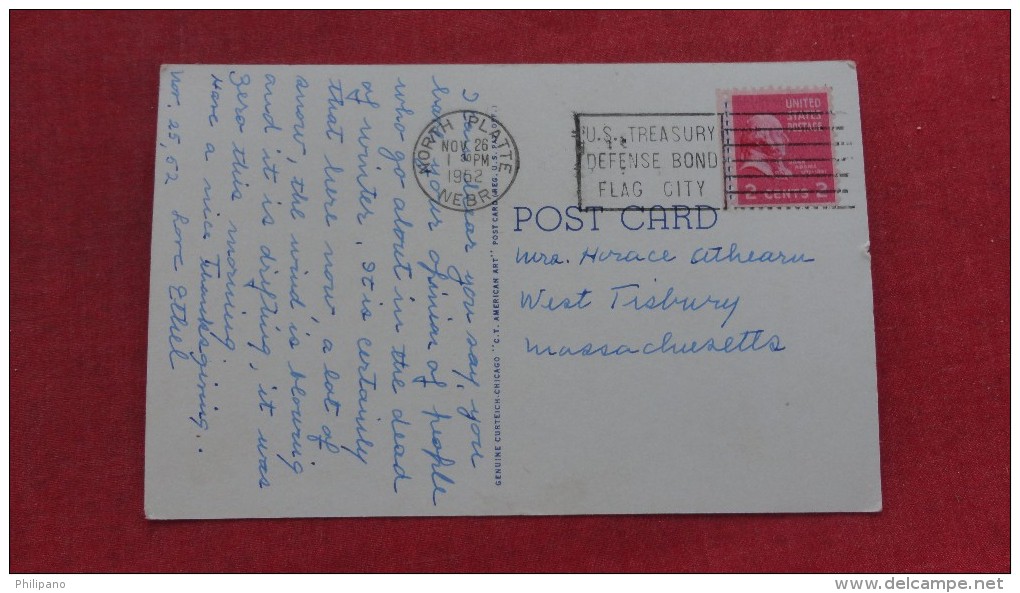 I can hear you say, you
have your opinion of people
who go about in the dead
of winter. It is certainly
that here now, a lot of
snow, the wind is blowing
and it is drifting, it was
zero this morning.
Have a nice Thanksgiving..
Nov. 25, 52 Love Ethel
GENUINE CURTEICH-CHICAGO "C.T. AMERICAN ART" POST CARD (REG. U.S. PAT. OFF.)
NORTH PLATTE
NOV 26
1 30 PM
1952
NEBR.
U.S. TREASURY
DEFENSE BOND
FLAG CITY
UNITED
STATES
POSTAGE
2 CENTS 2
POST CARD
Mrs. Horace Athearn
West Tisbury
Massachusetts
Philipano
www.delcampe.net